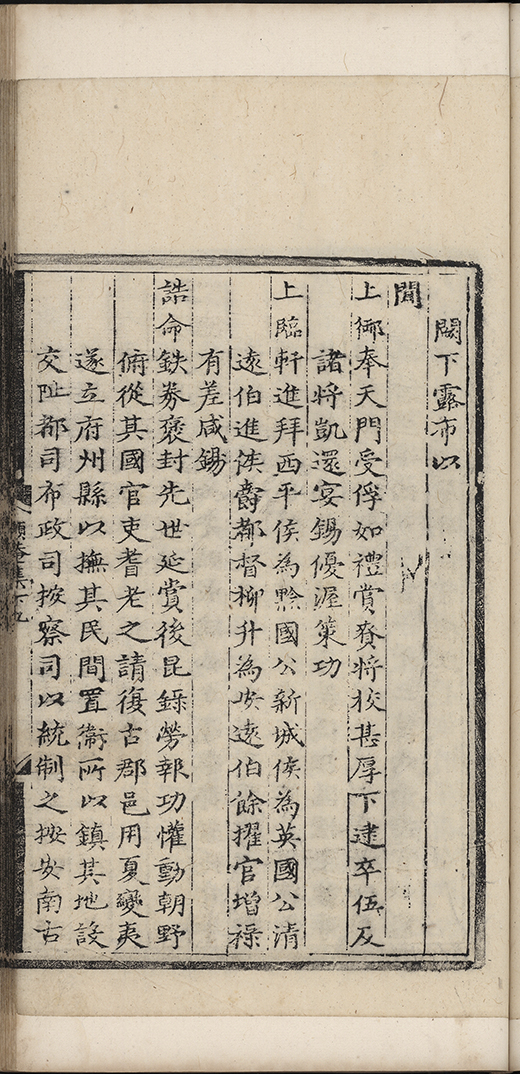 闕下露布以
聞
上御奉天門受俘如禮賞賚將校甚厚下逮卒伍及
諸將凱還宴錫優渥策功
上臨軒進拜西平侯為黔國公新城侯為英國公清
遠伯進侯爵都督柳升為安遠伯餘擢官增祿
有差咸錫
誥命鉄券褒封先世延賞後昆錄勞報功懽動朝野
俯從其國官吏耆老之請復古郡邑用夏變夷
遂立府州縣以撫其民間置衛所以鎮其地設
交阯都司布政司按察司以統制之按安南古
頤菴集十九